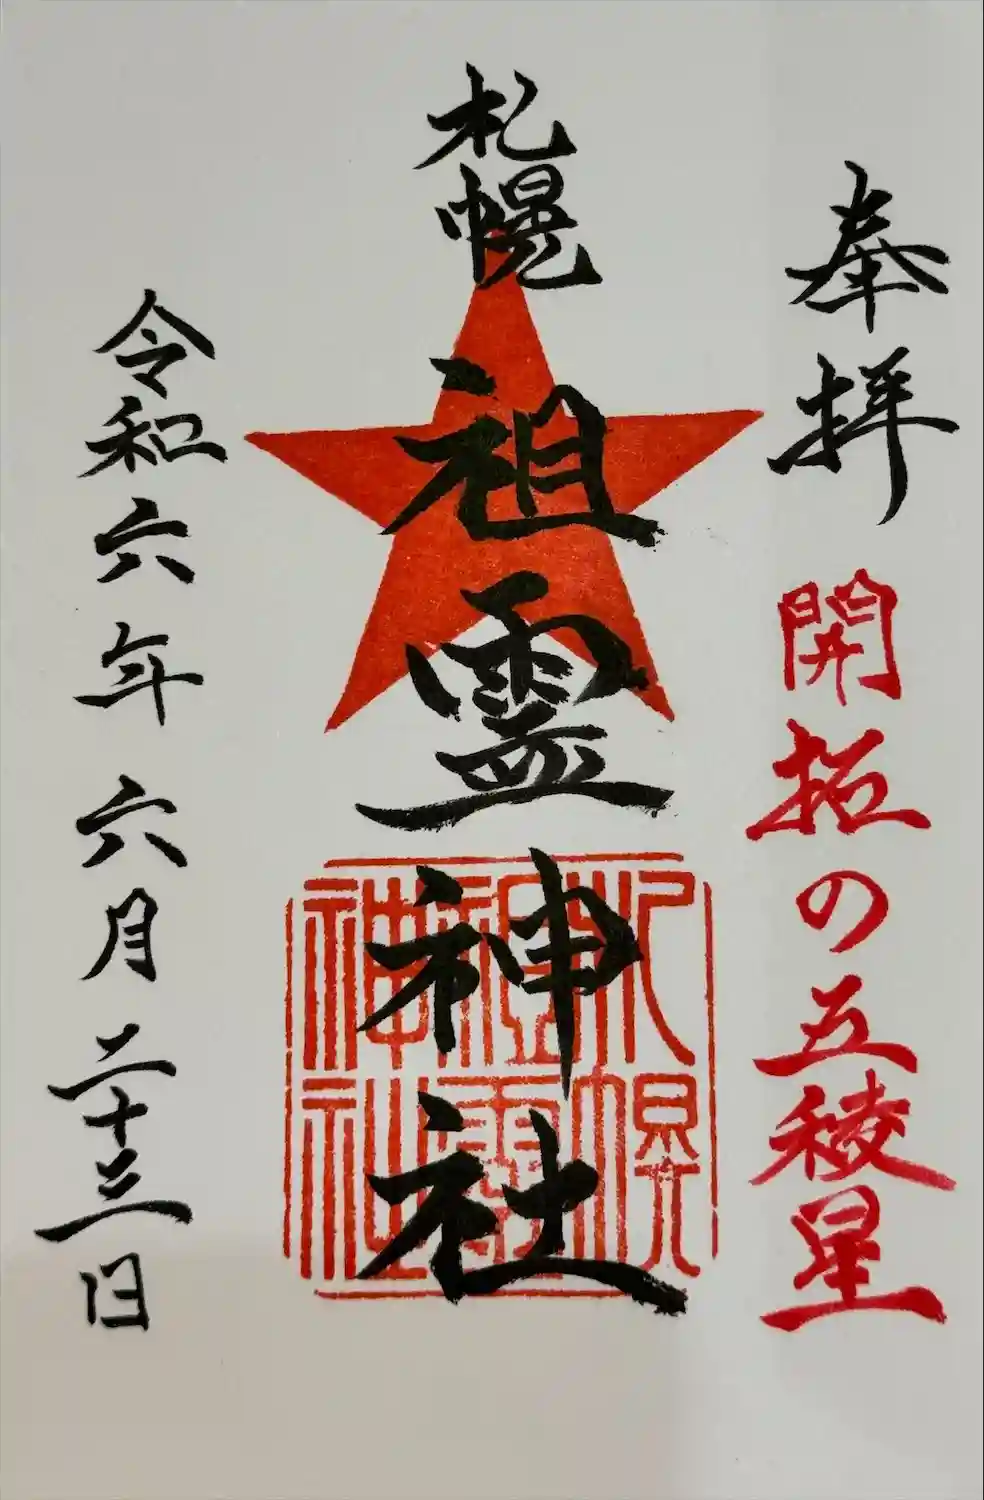 奉拝 開拓の五稜星
札幌祖霊神社
札幌
祖霊
神社
令和六年 六月二十三日